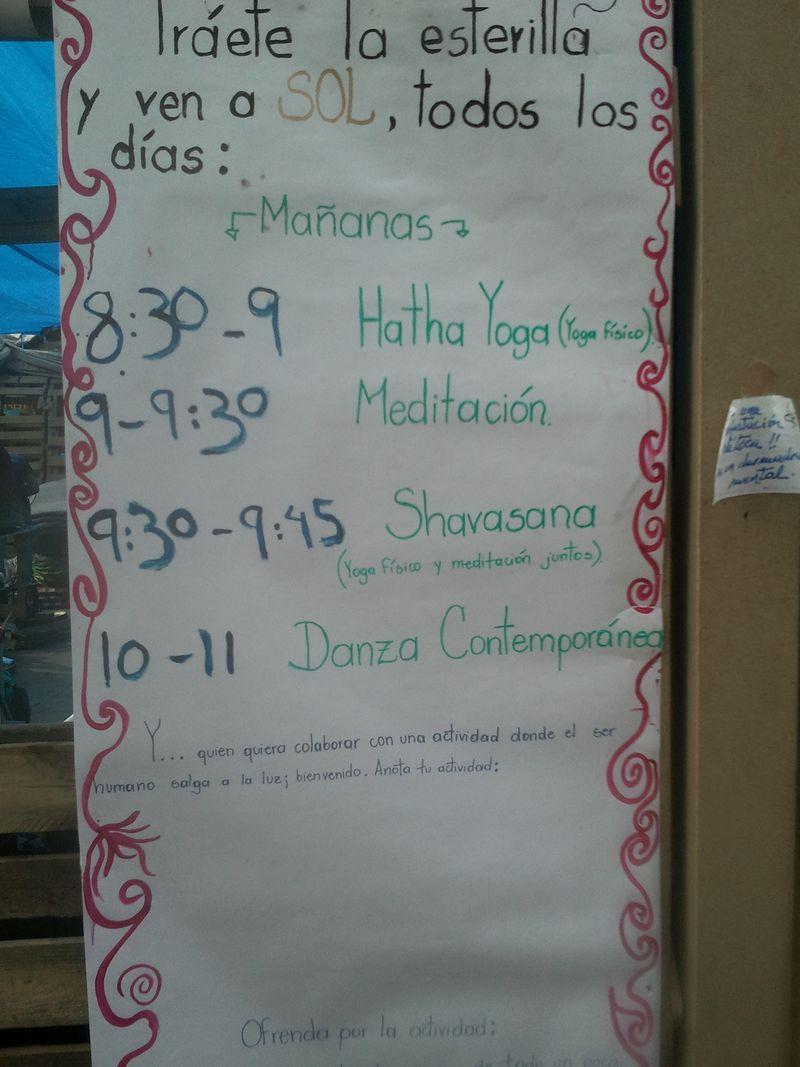 Tráete la esterilla
y ven a SOL, todos los
días:
Mañanas
8:30-9 Hatha Yoga (Yoga físico).
9-9:30 Meditación.
9:30-9:45 Shavasana
(Yoga físico y meditación juntos).
10-11 Danza Contemporánea
Y... quien quiera colaborar con una actividad donde el ser
humano salga a la luz; bienvenido. Anota tu actividad:
Ofrenda por la actividad:
de todo un poco
una
mental.